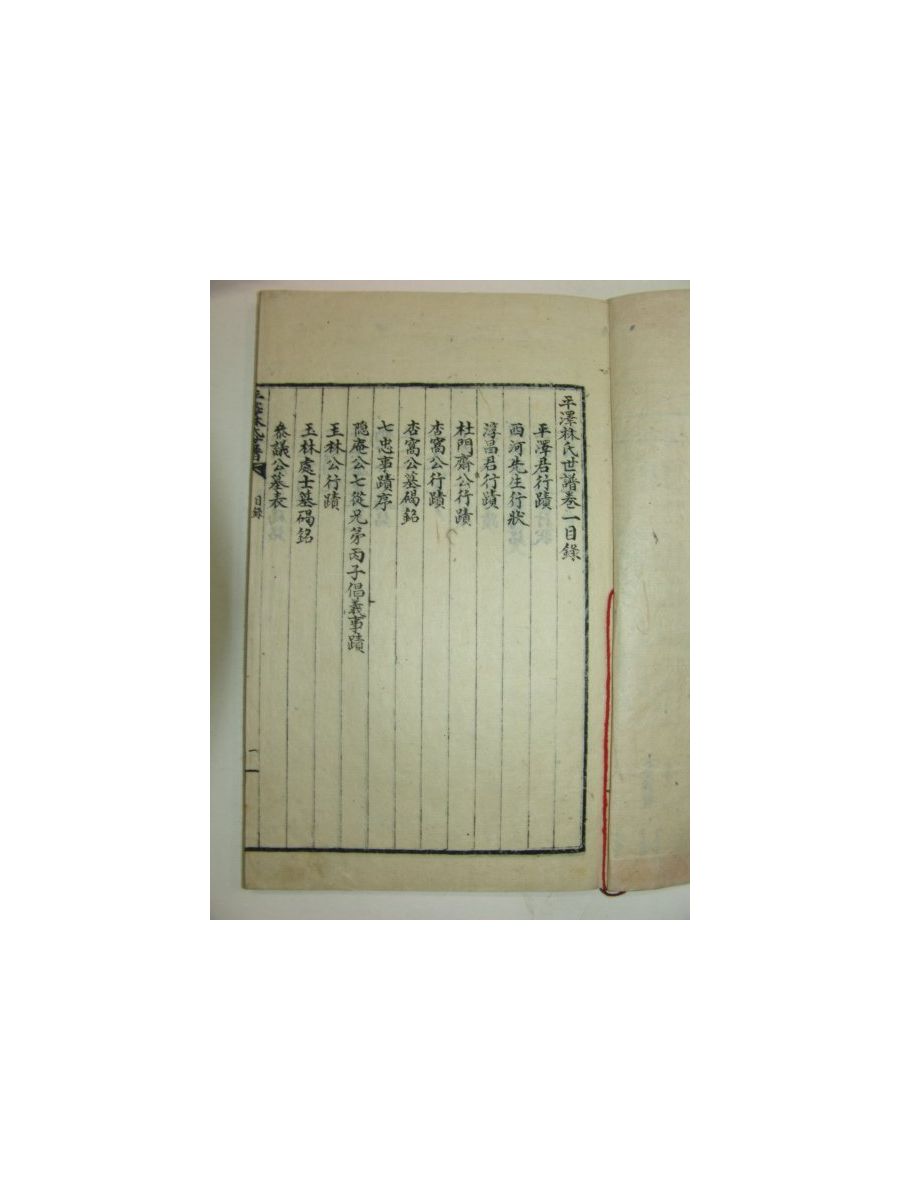 平澤林氏世譜卷一目錄
平澤君行蹟
西河先生行狀
淳昌君行蹟
杜門齋公行蹟
杏窩公行蹟
杏窩公墓碣銘
七忠事蹟序
隱庵公七從兄弟丙子倡義事蹟
玉林公行蹟
玉林處士墓碣銘
叅議公墓表
平澤林氏譜
目錄
一